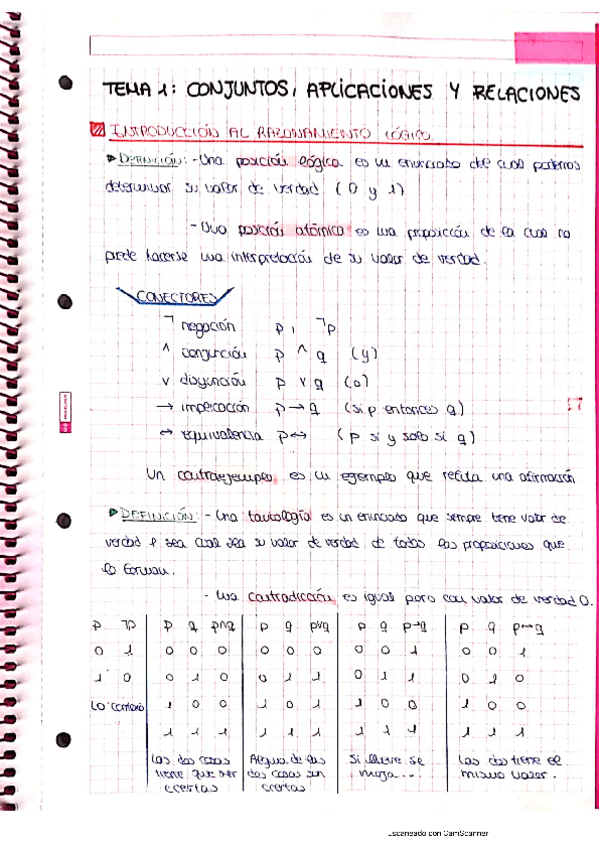 TEMA 1: CONJUNTOS, APLICACIONES Y RELACIONES
INTRODUCCIÓN AL RAZONAMIENTO LÓGICO
DEFINICIÓN: - Una posición lógica es un enunciado del cual podemos
determinar su valor de verdad (0 y 1)
- Una posición atómica es una proposición de la cual no
puede hacerse una interpretación de su valor de verdad.
CONECTORES
¬ negación p, ¬p
^ conjunción p ^ q (y)
v disyunción p v q (o)
→ implicación p → q (si p entonces q)
↔ equivalencia p ↔ (p si y solo si q)
Un contraejemplo es un ejemplo que refuta una afirmación
DEFINICIÓN: - Una tautología es un enunciado que siempre tiene valor de
verdad 1 sea cual sea su valor de verdad de todas las proposiciones que
lo forman.
- Una contradicción es igual pero con valor de verdad 0.
p ¬p p q p^q p q pvq p q p→q p q p↔q
0 1 0 0 0 0 0 0 0 0 1 0 0 1
1 0 0 1 0 0 1 1 0 1 1 0 1 0
Lo contrario 1 0 0 1 0 1 1 0 0 1 0 0
1 1 1 1 1 1 1 1 1 1 1 1
Las dos cosas Alguna de las Si llueve se Las dos tiene el
tiene que ser dos cosas son moja... mismo valor.
ciertas ciertas
Escaneado con CamScanner